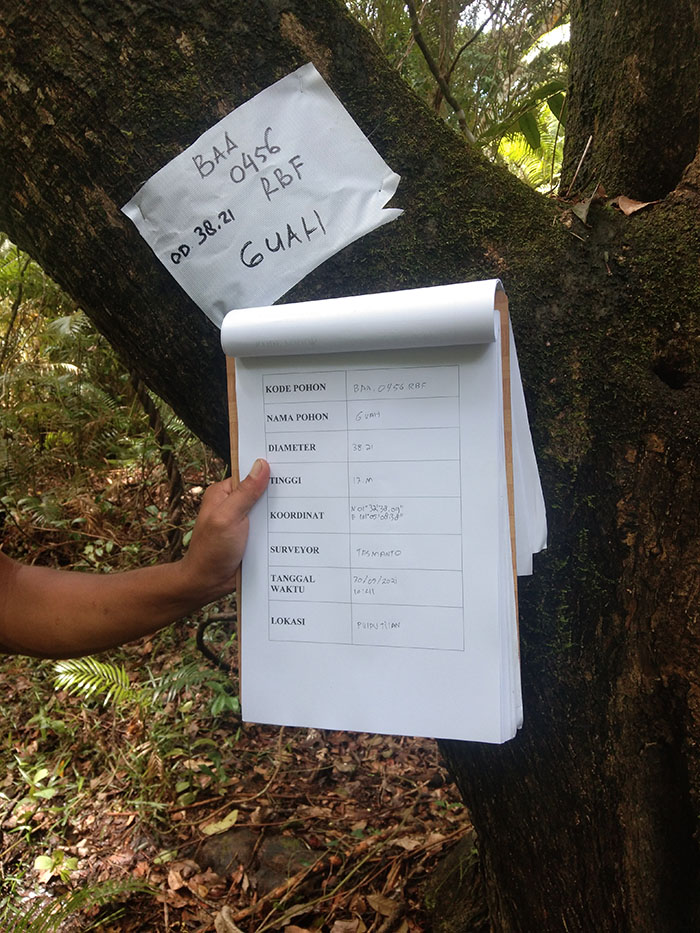 BAA
0456
RBF
OD 38.21
GUAH
KODE POHON BAA. 0456 RBF
NAMA POHON GUAH
DIAMETER 38.21
TINGGI 17 M
KOORDINAT N 01°32'38.09"
SURVEYOR TASMANTO
TANGGAL 20/07/2021
WAKTU
LOKASI